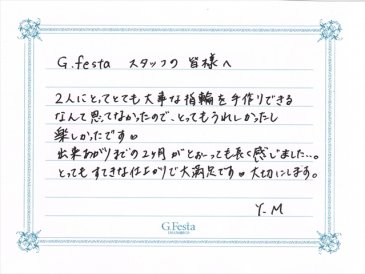 G.festa スタッフの 皆様へ
2人にとってとても大事な指輪を手作りできる
なんて思ってなかったので、とってもうれしかったし
楽しかったです♡
出来あがりまでの2ヶ月がとおーっても長く感じました…。
とってもすてきな仕上がりで大満足です♡大切にします。
Y.M
G.Festa